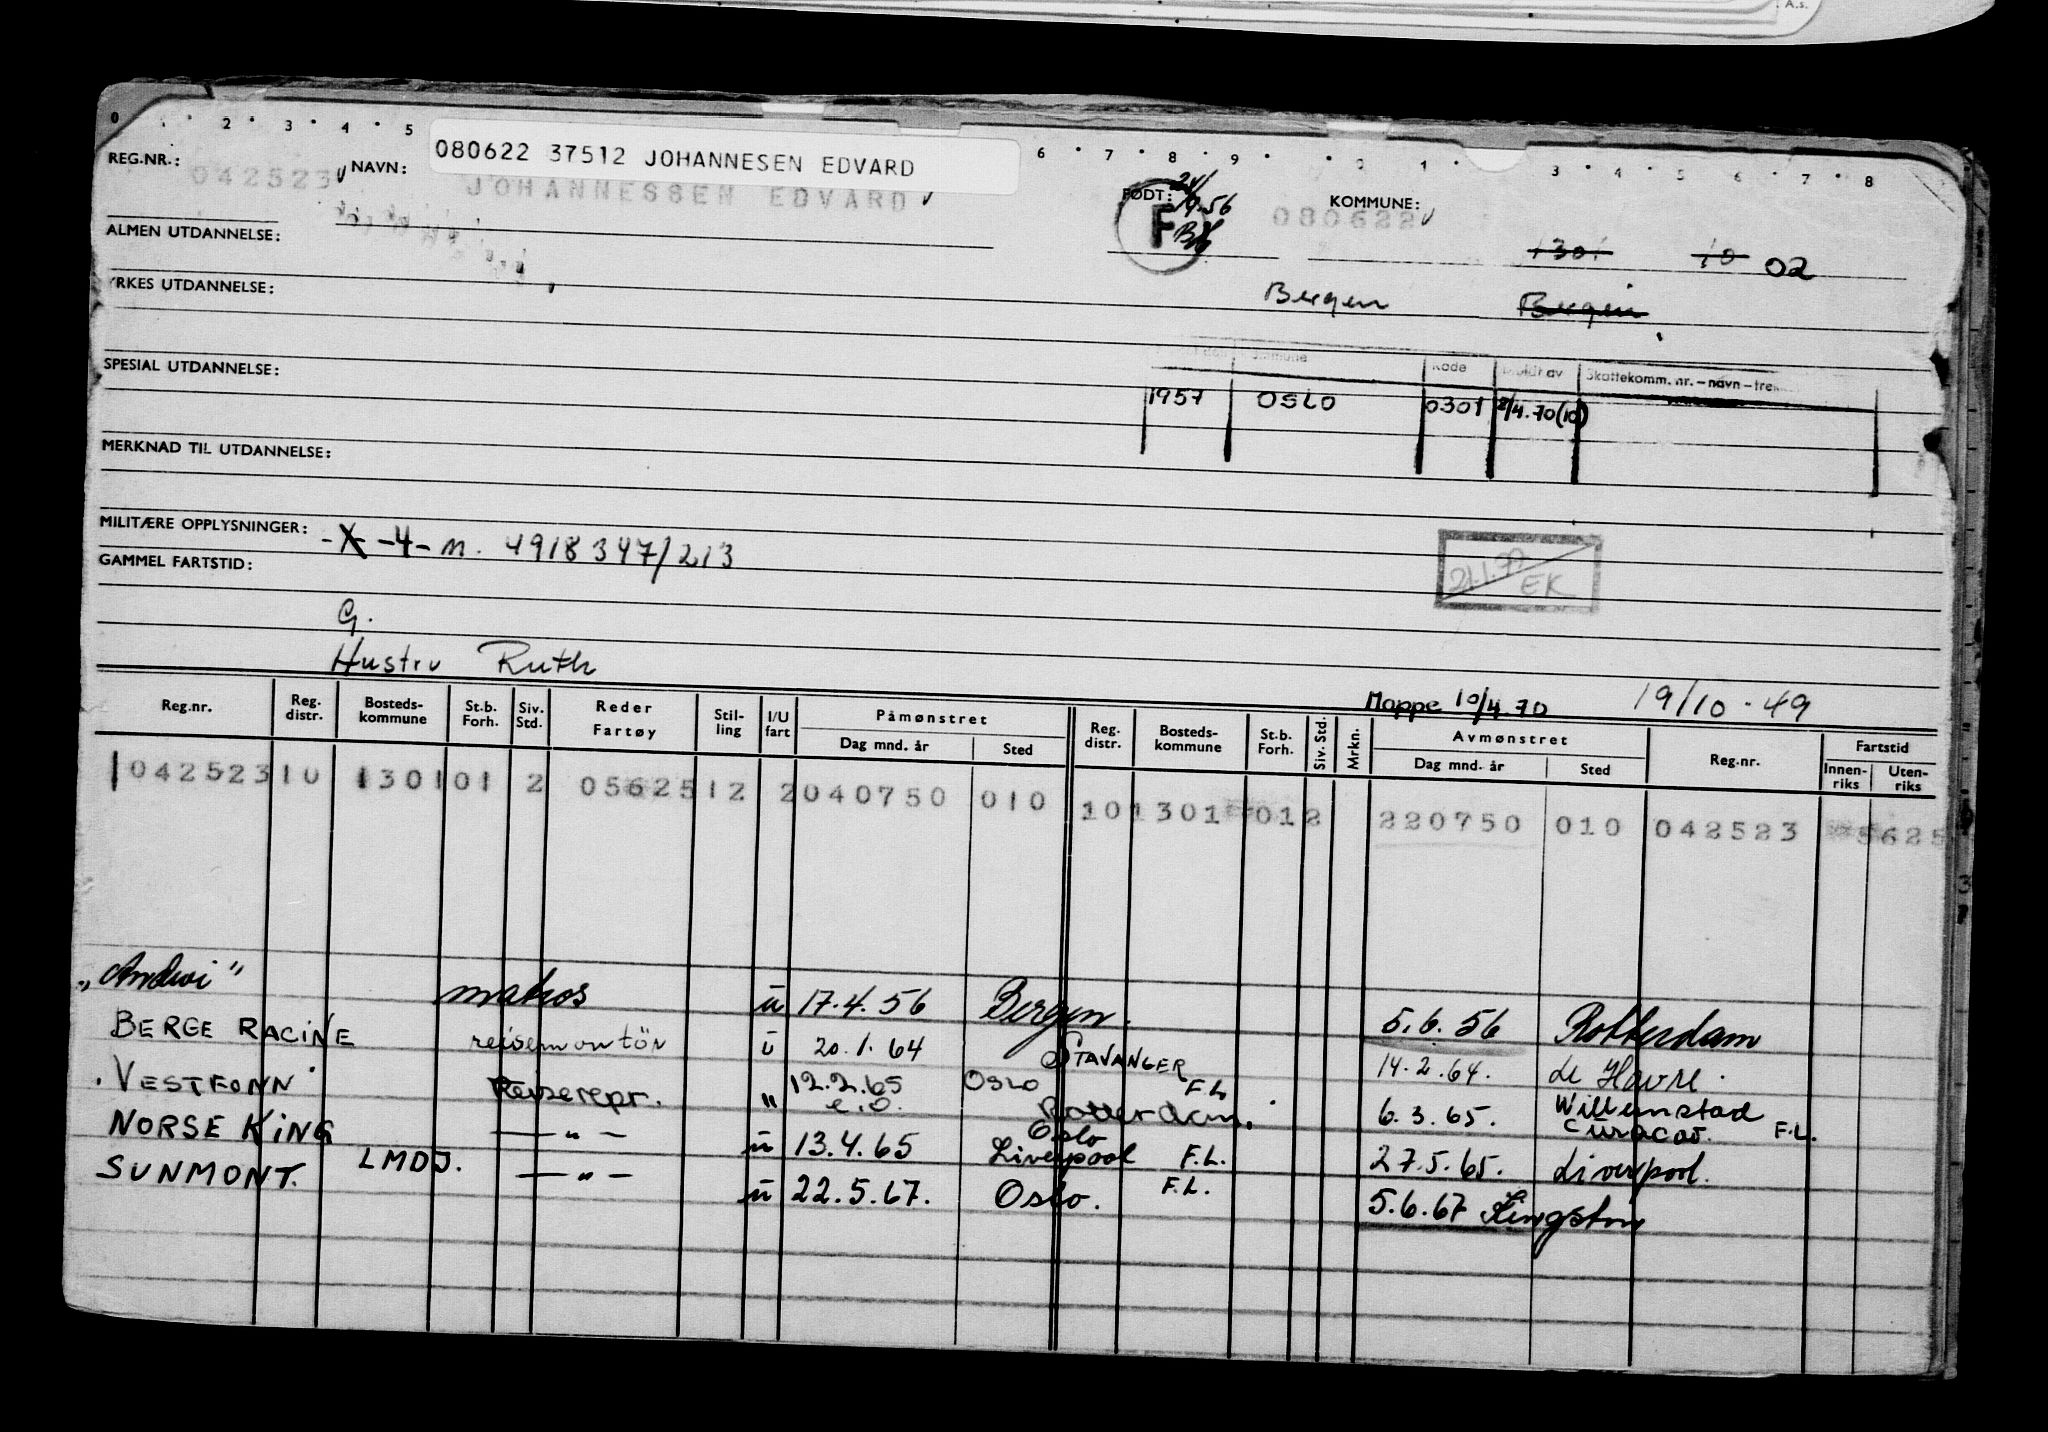 A.s.
0 1 2 3 4 5 6 7 8 9 2 1 3 4 5 6 7 8
REG.NR.: 042523 NAVN: 080622 37512 JOHANNESEN EDVARD
JOHANNESSEN EDVARD
FØDT: 080622 KOMMUNE:
F
ALMEN UTDANNELSE:
1301 10 02
YRKES UTDANNELSE:
Bergen Bergen
SPESIAL UTDANNELSE:
Kode Skattekomm.nr.-navn-
1957 OSLO 0301 2/4.70(10)
MERKNAD TIL UTDANNELSE:
MILITÆRE OPPLYSNINGER: -X-4-m. 4918347/213
GAMMEL FARTSTID:
EK
G.
Hustru Ruth
Mappe 10/4.70 19/10-49
Reg.nr. Reg. distr. Bosteds-kommune St.b. Forh. Siv. Std. Reder Fartøy Stil-ling I/U fart Påmønstret Dag mnd. år Sted Reg. distr. Bosteds-kommune St.b. Forh. Siv. Std. Mrkn. Avmønstret Dag mnd. år Sted Reg.nr. Fartstid Innen-riks Uten-riks
1 042523 10 1301 01 2 05625 12 2 040750 010 10 1301 01 2 220750 010 042523 5625
matros u 17.4.56 Bergen. 5.6.56 Rotterdam
BERGE RACINE reisemontör u 20.1.64 STAVANGER 14.2.64. Le Havre.
VESTFONN Reiserepr. " 12.2.65 Oslo F.L. 6.3.65. Willemstad
e.o. Rotterdam. Curacao. F.L.
Oslo
NORSE KING — " — u 13.4.65 Liverpool F.L. 27.5.65. Liverpool.
SUNMONT. LMDJ. — " — u 22.5.67. Oslo. F.L. 5.6.67 Kingston